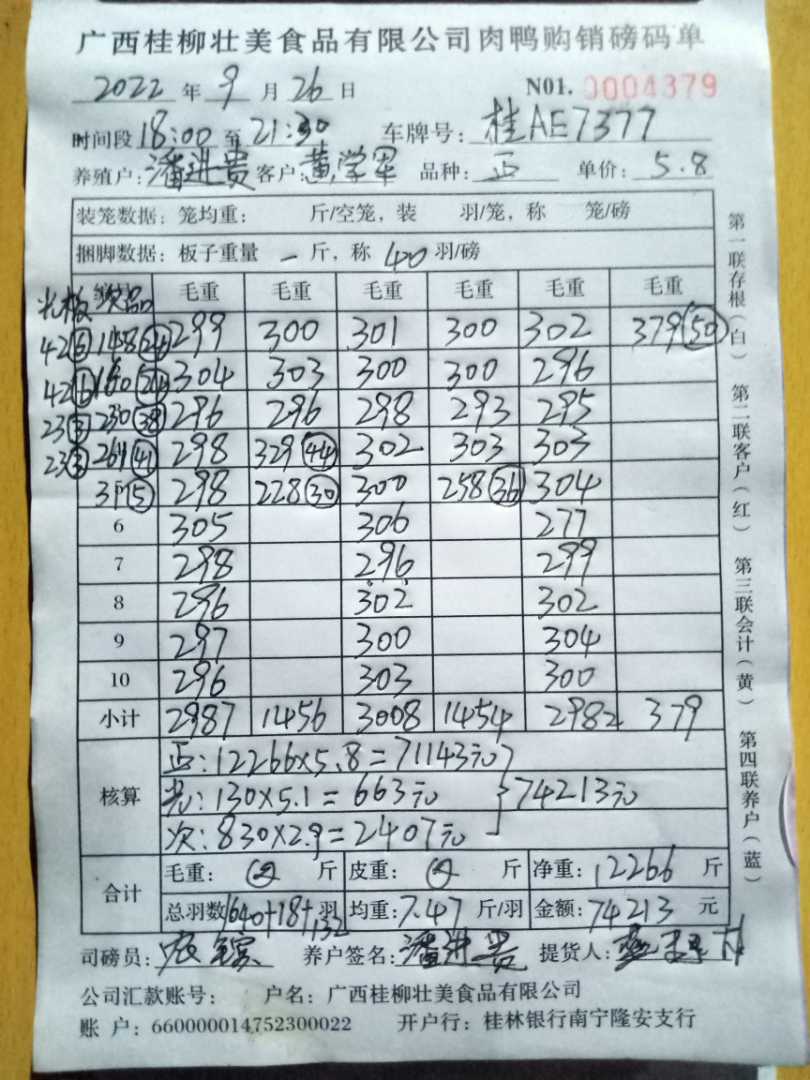 广西桂柳壮美食品有限公司肉鸭购销磅码单
2022 年 9 月 26 日 N01. 0004379
时间段 18:00 至 21:30 车牌号: 桂AE7377
养殖户: 潘进贵 客户: 黄学军 品种: 正 单价: 5.8
装笼数据: 笼均重: 斤/空笼, 装 羽/笼, 称 笼/磅
捆脚数据: 板子重量 - 斤, 称 40 羽/磅
光板 次品 毛重 毛重 毛重 毛重 毛重 毛重
42 6 148 24 299 300 301 300 302 379 50
42 6 160 24 304 303 300 300 296
23 3 230 38 296 296 298 293 295
23 3 261 41 298 329 44 302 303 303
31 5 298 228 30 300 258 36 304
6 305 306 277
7 298 296 299
8 296 302 302
9 297 300 304
10 296 303 300
小计 2987 1456 3008 1454 2982 379
核算
正: 12266×5.8=71143元
光: 130×5.1=663元 74213元
次: 830×2.9=2407元
合计
毛重: 斤 皮重: 斤 净重: 12266 斤
总羽数 1640+18+132 羽 均重: 7.47 斤/羽 金额: 74213 元
司磅员: 养户签名: 潘进贵 提货人:
公司汇款账号: 户名: 广西桂柳壮美食品有限公司
账 户: 660000014752300022 开户行: 桂林银行南宁隆安支行
第一联存根(白) 第二联客户(红) 第三联会计(黄) 第四联养户(蓝)